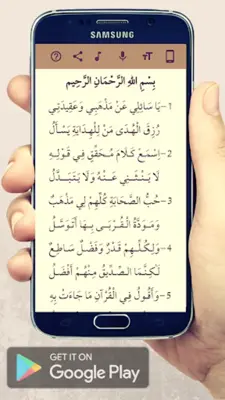 SAMSUNG
بِسْمِ اللهِ الرَّحْمَانِ الرَّحِيمِ
1- يَا سَائِلِي عَنْ مَذْهَبِي وَعَقِيدَتِي
رُزِقَ الْهُدَى مَنْ لِلْهِدَايَةِ يَسْأَلُ
2- اِسْمَعْ كَلَامَ مُحَقِّقٍ فِي قَوْلِهِ
لَا يَنْثَنِي عَنْهُ وَلَا يَتَبَدَّلُ
3- حُبُّ الصَّحَابَةِ كُلُّهُمْ لِي مَذْهَبٌ
وَمَوَدَّةُ الْقُرْبَى بِهَا أَتَوَسَّلُ
4- وَلِكُلِّهِمْ قَدْرٌ وَفَضْلٌ سَاطِعٌ
لَكِنَّمَا الصِّدِّيقُ مِنْهُمْ أَفْضَلُ
5- وَأَقُولُ فِي الْقُرْآنِ مَا جَاءَتْ بِهِ
GET IT ON
Google Play